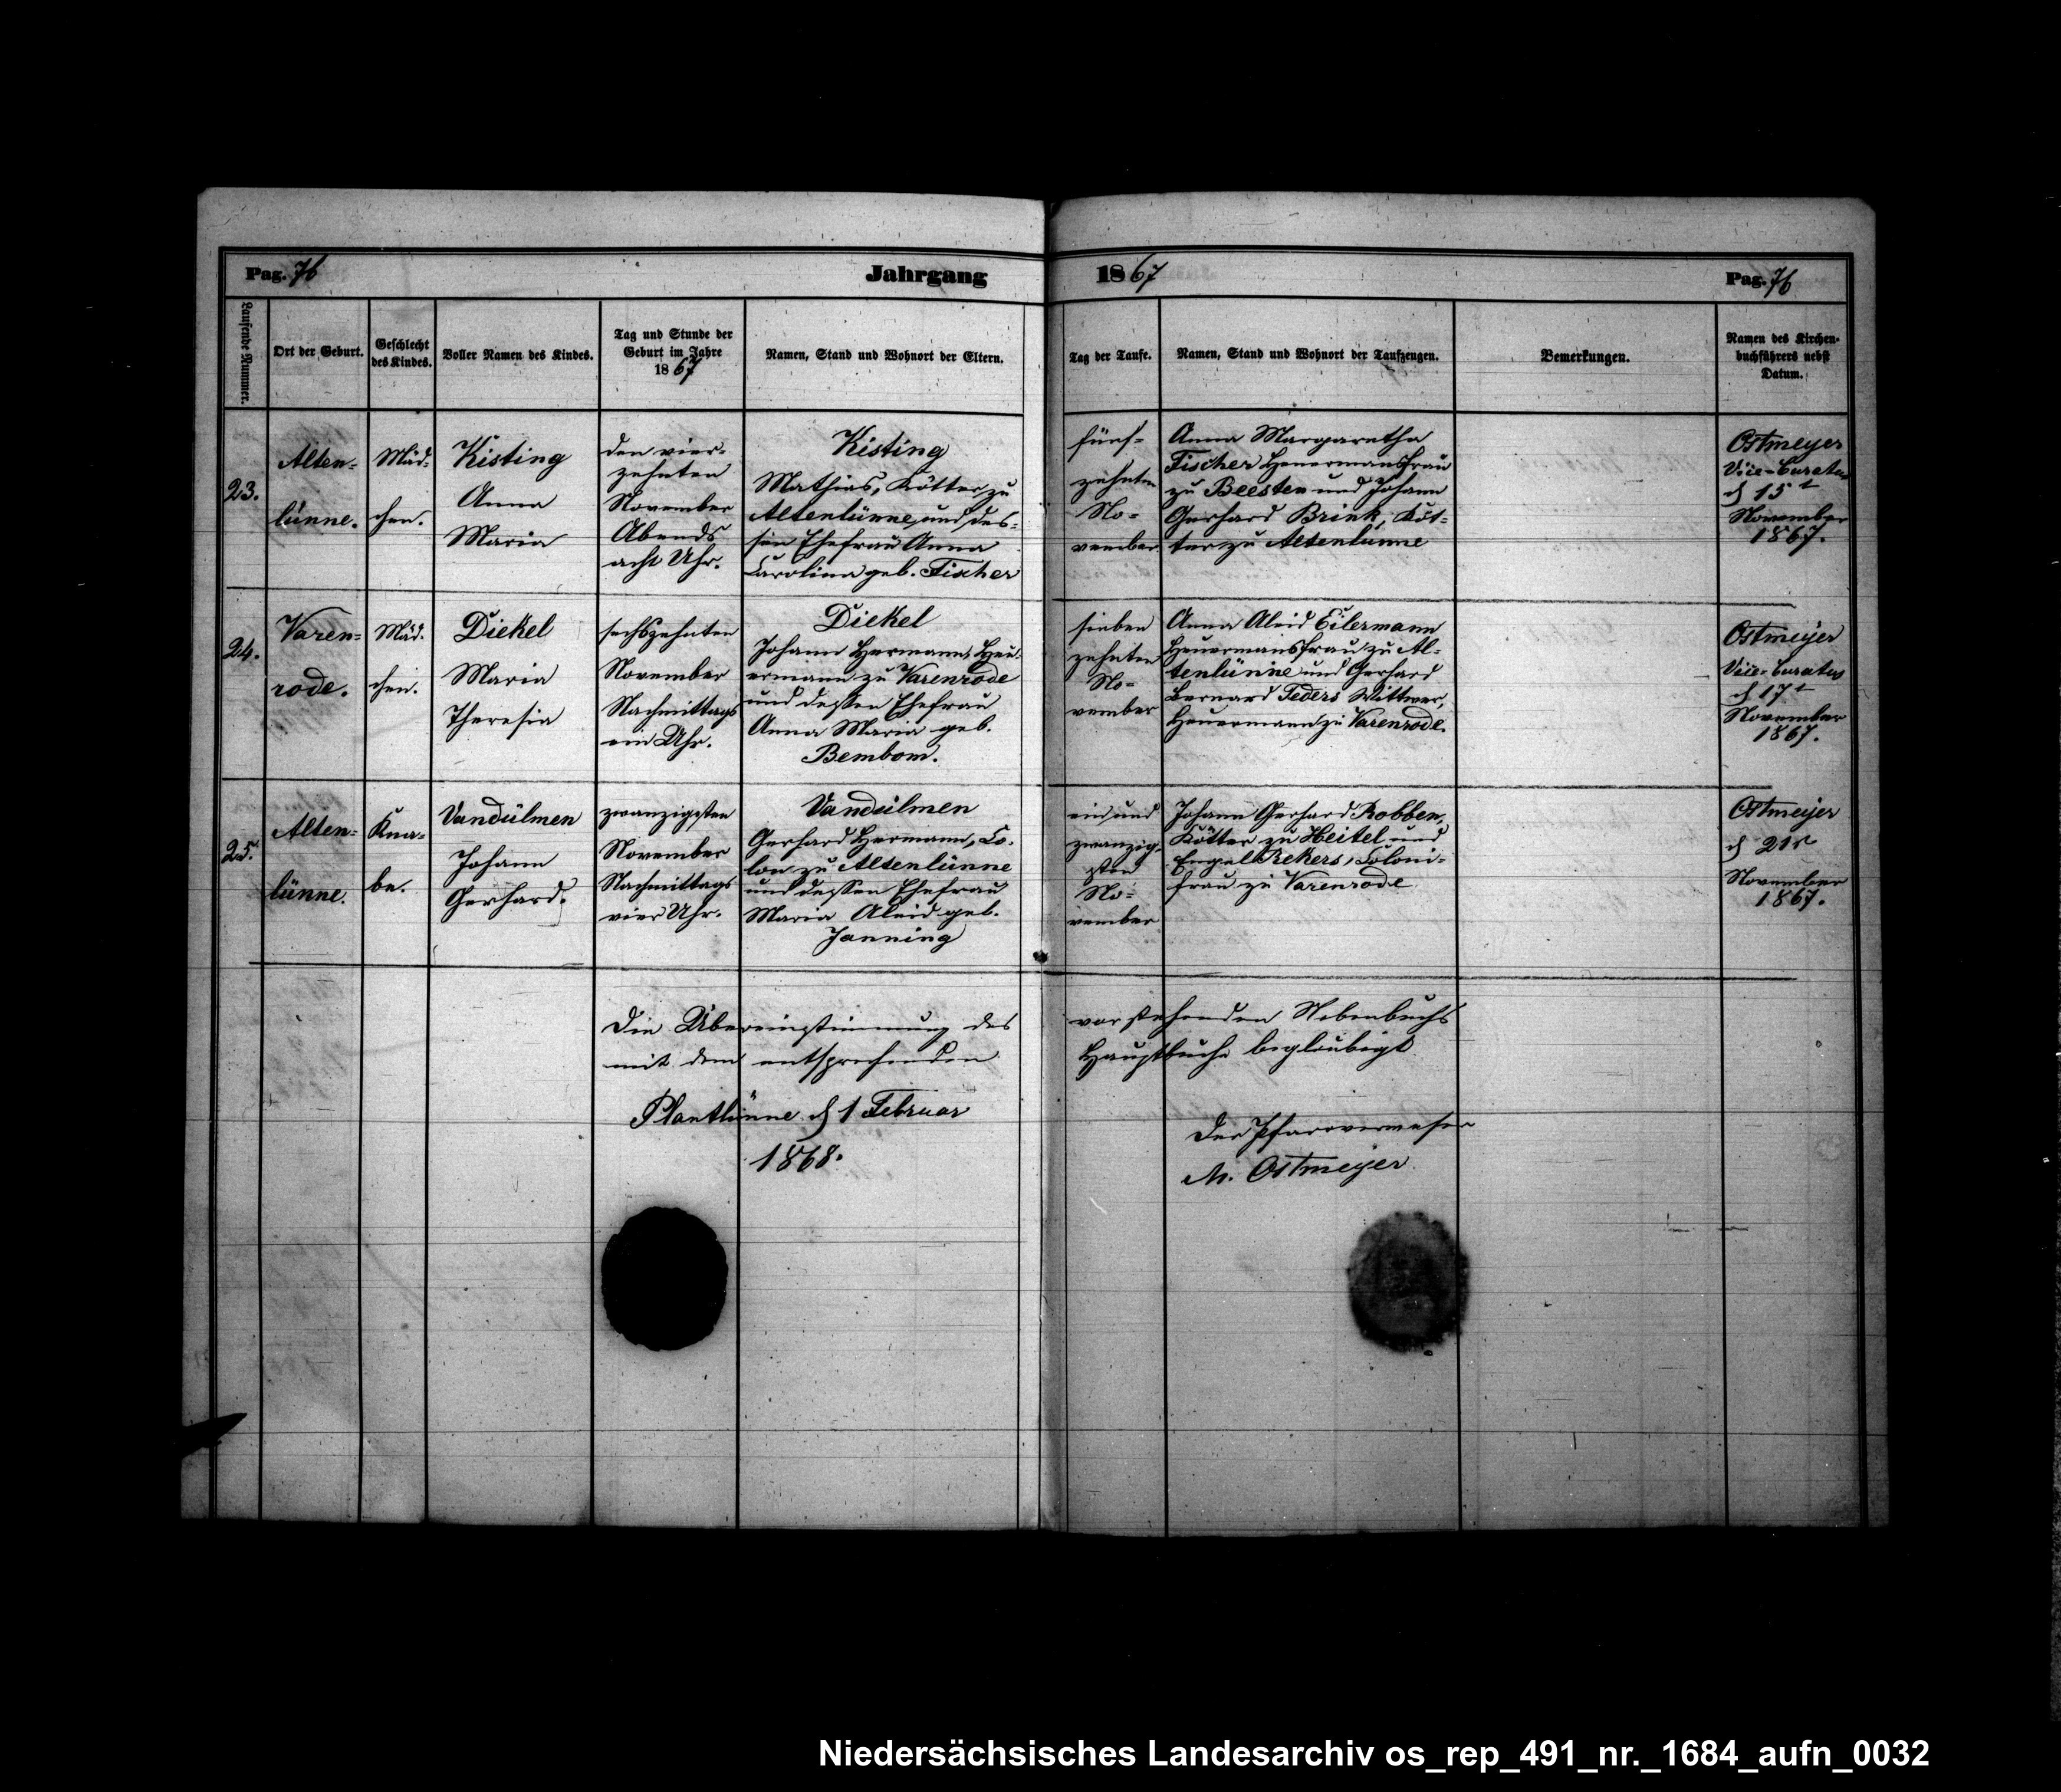 Pag. 76
Jahrgang
1867
Pag. 76
Laufende Nummer.
Ort der Geburt.
Geschlecht
des Kindes.
Voller Namen des Kindes.
Tag und Stunde der
Geburt im Jahre
1867
Namen, Stand und Wohnort der Eltern.
Tag der Taufe.
Namen, Stand und Wohnort der Taufzeugen.
Bemerkungen.
Namen des Kirchen-
buchführers nebst
Datum.
23.
Alten-
lünne.
Mäd-
chen.
Kisting
Anna
Maria
den vier-
zehnten
November
Abends
acht Uhr.
Kisting
Mathias, Kötter zu
Altenlünne und des-
sen Ehefrau Anna
Carolina geb. Fischer
fünf-
zehnten
No-
vember
Anna Margaretha
Fischer Heuermansfrau
zu Beesten und Johann
Gerhard Brink, Köt-
ter zu Altenlünne
Ostmeyer
Vice-Curatus
d 15t
November
1867.
24.
Varen-
rode.
Mäd-
chen.
Diekel
Maria
Theresia
sechszehnten
November
Nachmittags
ein Uhr.
Diekel
Johann Hermann, Heu-
ermann zu Varenrode
und dessen Ehefrau
Anna Maria geb.
Bembom.
sieben
zehnten
No-
vember
Anna Aleid Eilermann
Heuermansfrau zu Al-
tenlünne und Gerhard
Bernard Feders Wittwer,
Heuermann zu Varenrode.
Ostmeyer
Vice-Curatus
d 17t
November
1867.
25.
Alten-
lünne.
Kna-
be.
Vandülmen
Johann
Gerhard.
zwanzigsten
November
Nachmittags
vier Uhr.
Vandülmen
Gerhard Hermann, Co-
lon zu Altenlünne
und dessen Ehefrau
Maria Aleid geb.
Janning
ein und
zwanzig-
sten
No-
vember
Johann Gerhard Robben,
Kötter zu Heitel und
Engel Rekers, Coloni-
frau zu Varenrode
Ostmeyer
d 21t
November
1867.
Die Übereinstimmung des vorstehenden Nebenbuchs
mit dem entsprechenden Hauptbuche beglaubigt
Plantlünne d 1 Februar
1868.
Der Pfarrverweser
M. Ostmeyer
Niedersächsisches Landesarchiv os_rep_491_nr._1684_aufn_0032